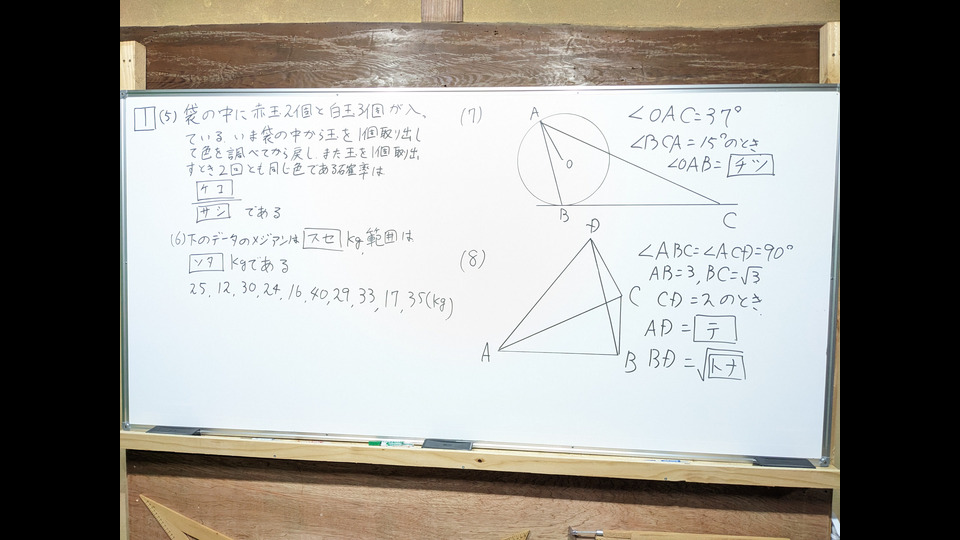 1 (5) 袋の中に赤玉2個と白玉3個が入っ
ている.いま袋の中から玉を1個取り出し
て色を調べてから戻し,また玉を1個取出
すとき2回とも同じ色である確率は
ケコ
サシ である
(6)下のデータのメジアンは スセ kg,範囲は
ソタ kgである
25,12,30,24,16,40,29,33,17,35(kg)
(7)
A
O
B
C
∠OAC=37°
∠BCA=15°のとき
∠OAB= チツ
(8)
D
C
A
B
∠ABC=∠ACD=90°
AB=3, BC=√3
CD=2のとき
AD= テ
BD=√トナ